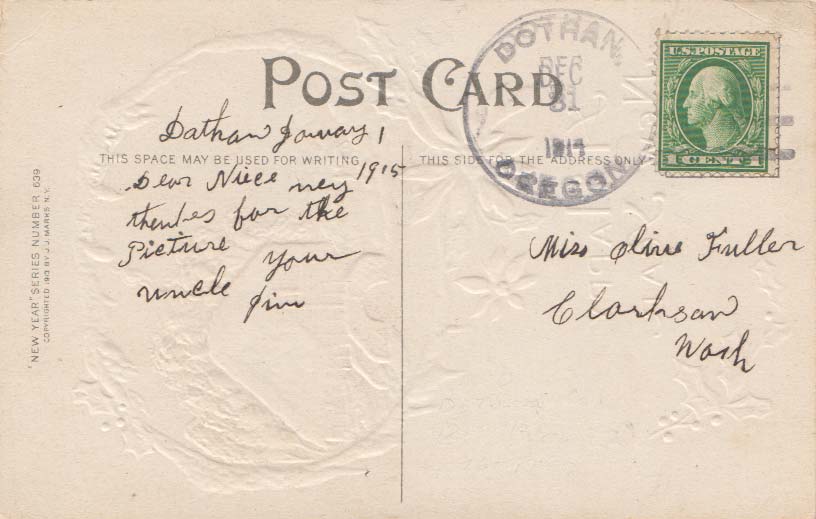 POST CARD
THIS SPACE MAY BE USED FOR WRITING
THIS SIDE FOR THE ADDRESS ONLY
"NEW YEAR" SERIES NUMBER 639
COPYRIGHTED 1913 BY J.J. MARKS N.Y.
DOTHAN,
DEC
31
1914
OREGON
U.S. POSTAGE
1 CENT 1
Dothan January 1
1915
Dear Niece mey
thenkes for the
Picture your
uncle Jim
Miss Olive Fuller
Clarkson
Wash